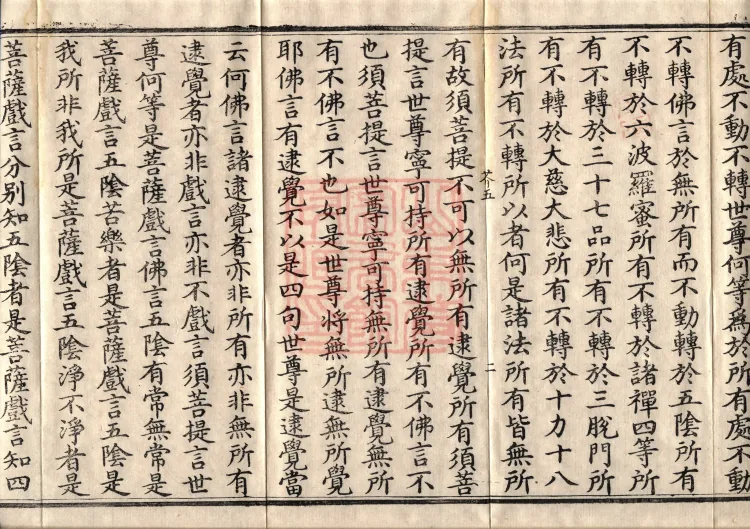 有處不動不轉世尊何等為於所有處不動
不轉佛言於無所有而不動轉於五陰所有
不轉於六波羅蜜所有不轉於諸禪四等所
有不轉於三十七品所有不轉於三脫門所
有不轉於大慈大悲所有不轉於十力十八
法所有不轉所以者何是諸法所有皆無所
芥五
二
有故須菩提不可以無所有逮覺所有須菩
提言世尊寧可持所有逮覺所有不佛言不
也須菩提言世尊寧可持無所有逮覺無所
有不佛言不也如是世尊將無所逮無所覺
耶佛言有逮覺不以是四句世尊是逮覺當
云何佛言諸逮覺者亦非所有亦非無所有
逮覺者亦非戲言亦非不戲言須菩提言世
尊何等是菩薩戲言佛言五陰有常無常是
菩薩戲言五陰苦樂者是菩薩戲言五陰是
我所非我所是菩薩戲言五陰淨不淨者是
菩薩戲言分別知五陰者是菩薩戲言知四